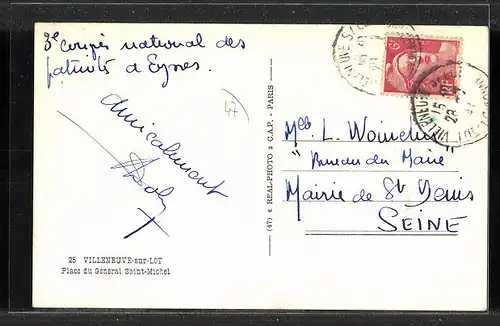 3e congrès national des
patriotes d'Eysses.
amicalement
47
Mlle L. Woinchin
Bureau du Maire
Mairie de St Denis
SEINE
(47) ★ REAL-PHOTO ★ C.A.P. - PARIS
25 VILLENEUVE-sur-LOT
Place du Général Saint-Michel